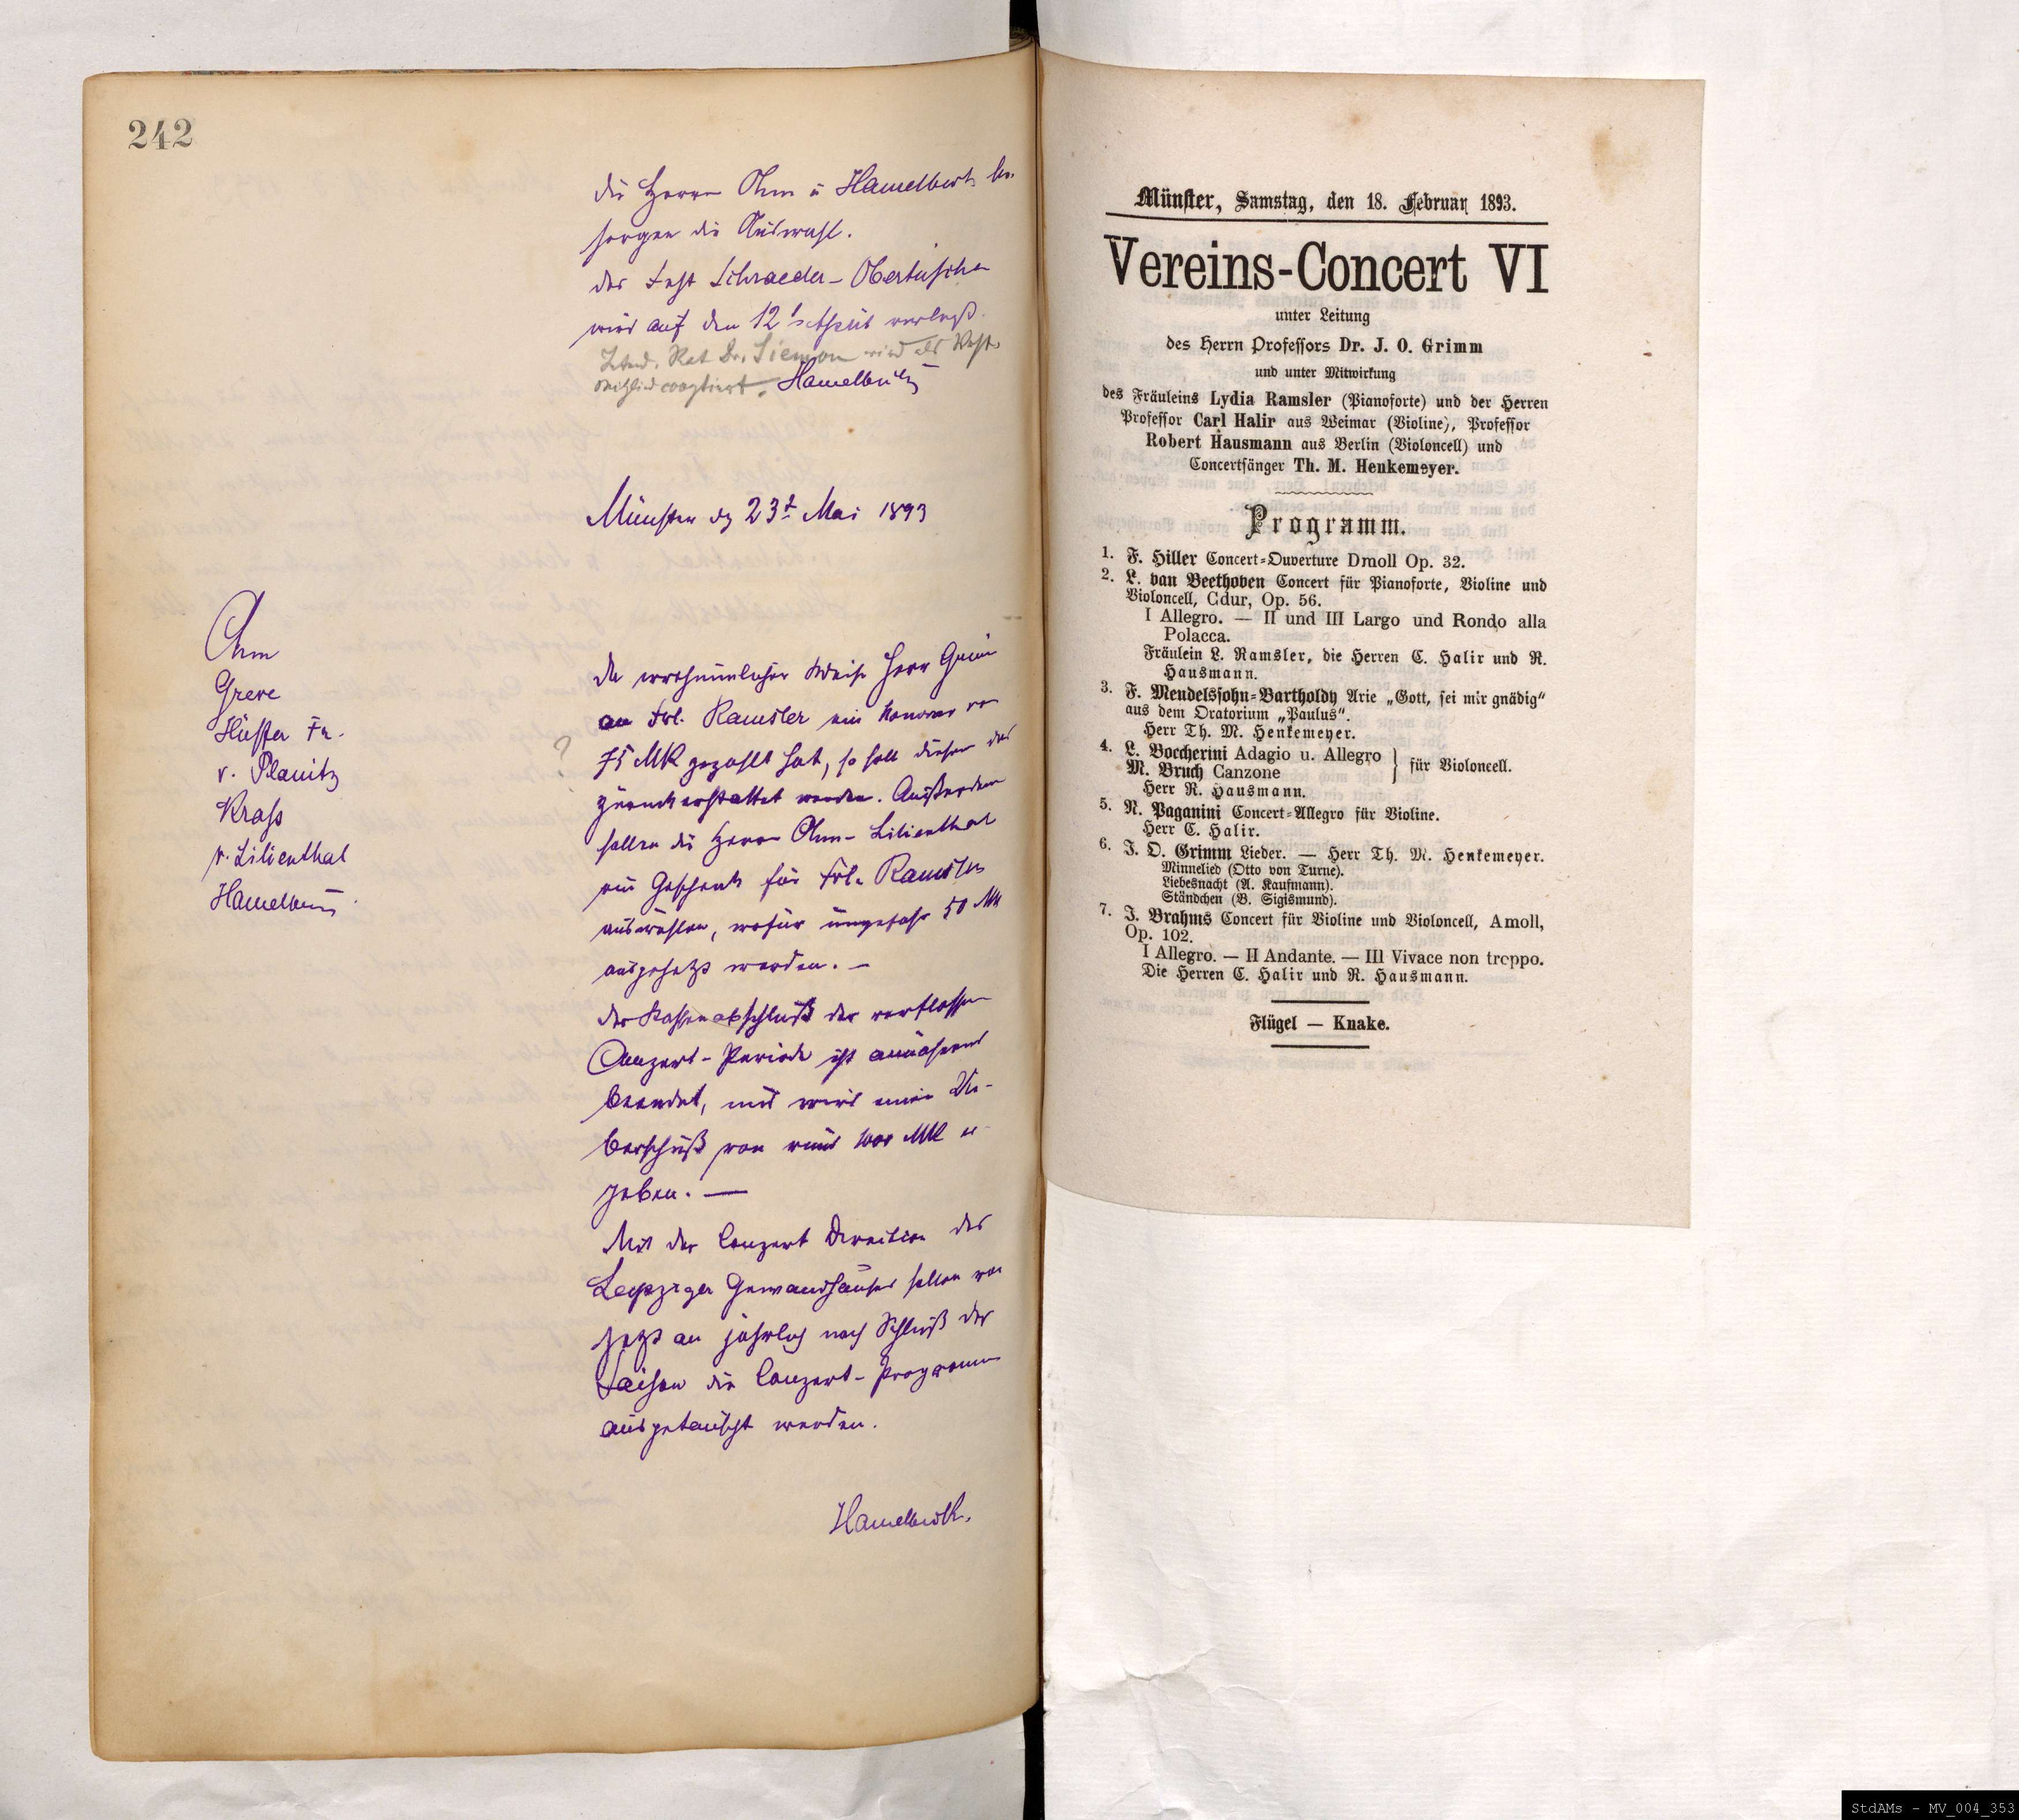 242
die Herren Ohm u Hamelbeck be-
sorgen die Auswahl.
das Fest Schraeder-Obertüschen
wird auf den 12 verlegt.
Intend. Rat Dr. Siemon wird als Vorst.
mitglied cooptiert. Hamelbeck
Münster dz 23t Mai 1893
Ohm
Greve
Hüffer Fr.
v. Planitz
Krass
v. Lilienthal
Hamelbeck
Da Herr Grimm
an Frl. Ramsler ein Honorar von
? 75 MK gezahlt hat, so soll diesem das
zurückerstattet werden. Ausserdem
sollen die Herren Ohm-Lilienthal
ein Geschenk für Frl. Ramsler
auswählen, wofür ungefähr 50 Mk
ausgesetzt werden. —
der Kassenabschluß der verflossen
Conzert-Periode ist annähernd
beendet, und wird einen Ue-
berschuß von rund 1000 MK er
geben. —
Mit der Conzert Direction des
Leipziger Gewandhauses sollen von
jetzt an jährlich nach Schluß der
Saison die Conzert-Programme
ausgetauscht werden.
Hamelbeck.
Münster, Samstag, den 18. Februar 1893.
Vereins-Concert VI
unter Leitung
des Herrn Professors Dr. J. O. Grimm
und unter Mitwirkung
des Fräuleins Lydia Ramsler (Pianoforte) und der Herren
Professor Carl Halir aus Weimar (Violine), Professor
Robert Hausmann aus Berlin (Violoncell) und
Concertsänger Th. M. Henkemeyer.
Programm.
1. F. Hiller Concert-Ouverture Dmoll Op. 32.
2. L. van Beethoven Concert für Pianoforte, Violine und
Violoncell, Cdur, Op. 56.
I Allegro. — II und III Largo und Rondo alla
Polacca.
Fräulein L. Ramsler, die Herren C. Halir und R.
Hausmann.
3. F. Mendelssohn-Bartholdy Arie „Gott, sei mir gnädig“
aus dem Oratorium „Paulus“.
Herr Th. M. Henkemeyer.
4. L. Boccherini Adagio u. Allegro } für Violoncell.
M. Bruch Canzone
Herr R. Hausmann.
5. N. Paganini Concert-Allegro für Violine.
Herr C. Halir.
6. J. O. Grimm Lieder. — Herr Th. M. Henkemeyer.
Minnelied (Otto von Turne).
Liebesnacht (A. Kaufmann).
Ständchen (B. Sigismund).
7. J. Brahms Concert für Violine und Violoncell, Amoll,
Op. 102.
I Allegro. — II Andante. — III Vivace non troppo.
Die Herren C. Halir und R. Hausmann.
Flügel — Knake.
StdAMs - MV_004_353